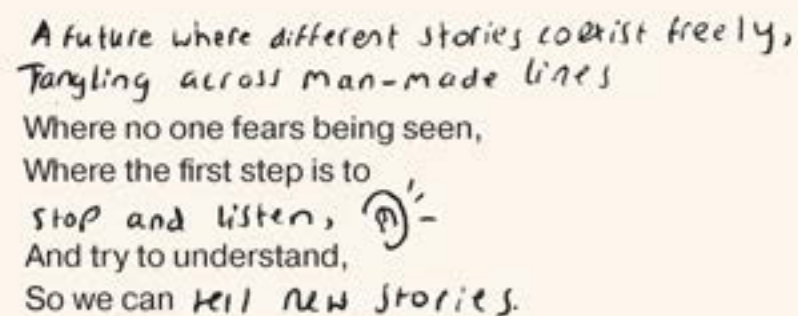 A future where different stories coexist freely,
Tangling across man-made lines
Where no one fears being seen,
Where the first step is to
stop and listen,
And try to understand,
So we can tell new stories.